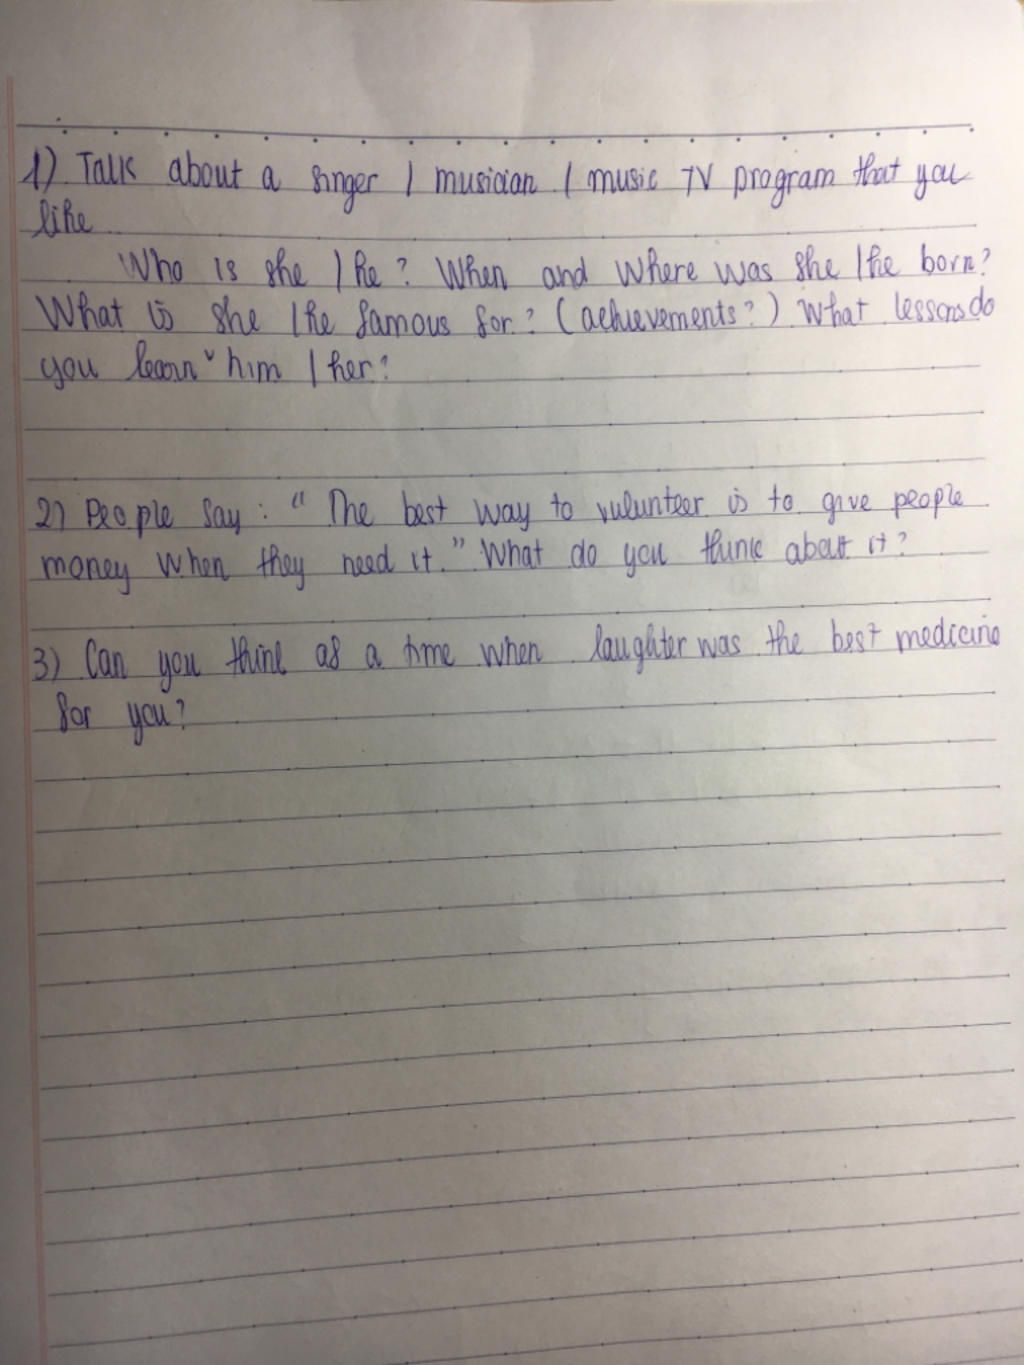 1) Talk about a singer / musician / music TV program that you
like
Who is she / he? When and where was she / he born?
What is she / he famous for? (achievements?) What lessons do
you learn ˅ him / her?
2) People say: "The best way to vulunteer is to give people
money when they need it." What do you think about it?
3) Can you think of a time when laughter was the best medicine
for you?